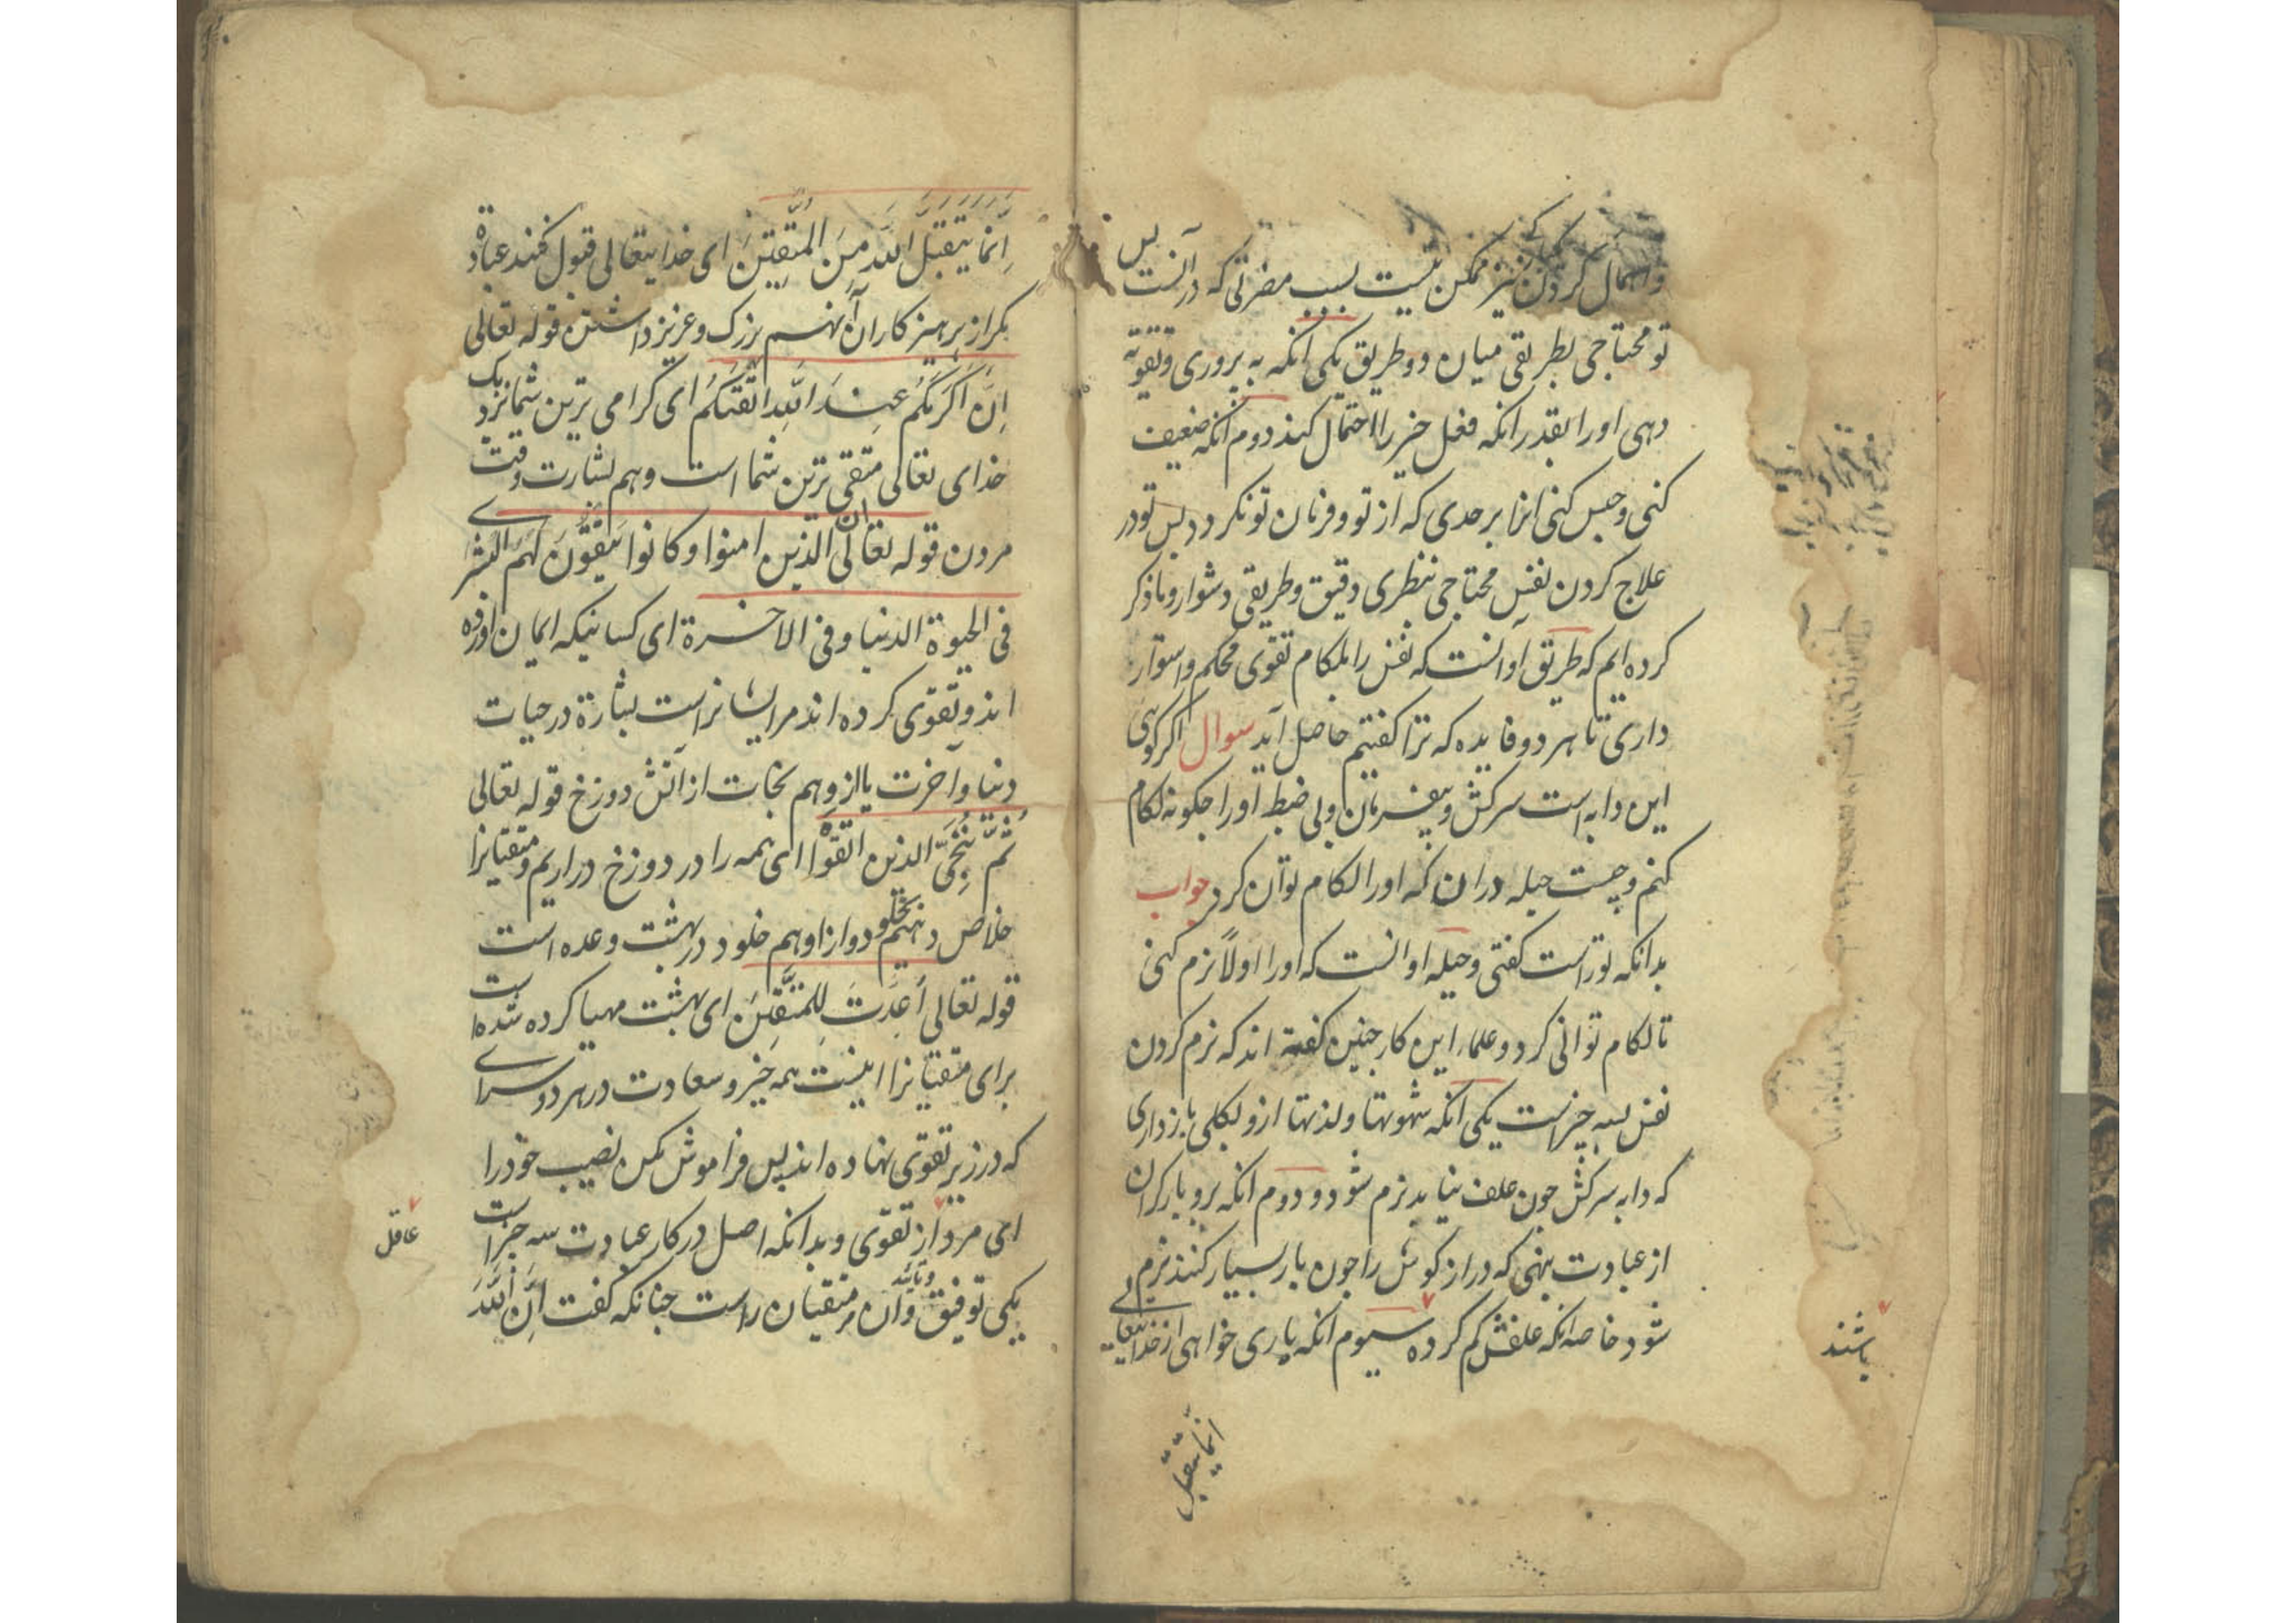 واهمال کردن نیز ممکن نیست بسبب مضرتی که در آنست پس
تو محتاجی بطریقی میان دو طریق یکی انکه به پروری وتقویة
دهی اورا بقدر انکه فعل خیر را احتمال کند دوم انکه ضعیف
کنی وحبس کنی انرا بر حدی که از تو وفرمان تو نکردد پس تو در
علاج کردن نفس محتاجی بنظری دقیق وطریقی دشوار وما ذکر
کرده ایم که طریق او آنست که نفس را بلکام تقوی محکم واستوار
داری تا هر دو فایده که ترا کفتیم حاصل آید سوال اکر کوی
این دابه است سرکش وبیفرمان وبی ضبط اورا جکونه لکام
کنم وچیست حیله در ان که اورا لکام توان کرد جواب
بدانکه تو راست کفتی وحیله او انست که اورا اولاً نرم کنی
تا لکام توانی کرد وعلماء این کار جنین کفته اند که نرم کردن
نفس بسه چیزست یکی انکه شهوتها ولذتها ازو بکلی باز داری
که دابه سرکش جون علف نیابد نرم شود ودوم انکه برو بار کران
از عبادت بنهی که دراز کوش را جون بار بسیار کنند نرم
شود خاصه انکه علفش کم کرده سیوم انکه یاری خواهی از خدایتعالی
باشند
انما یتقبل
اِنَّما یَتَقَبَّلُ اللّٰه مِنَ المُتَّقِینَ ای خدایتعالی قبول نکند عبادة
مکر از پرهیز کاران نهم بزرک وعزیز داشتن قوله تعالی
اِنَّ اَکرَمَکُم عِندَ اللّٰهِ اَتقٰکُم ای کرامی ترین شما نزدیک
خدای تعالی متقی ترین شما است وهم بشارت وقت
مردن قوله تعالی الذین امنوا وکانوا یَتَّقُونَ لَهُمُ البُشری
فی الحیوة الدنیا وفی الاخرة ای کسانیکه ایمان اورده
اند وتقوی کرده اند مر ایشانراست بشارة در حیات
دنیا وآخرت یازدهم نجات از آتش دوزخ قوله تعالی
ثُمَّ نُنَجِّی الذین اتقَوْا ای همه را در دوزخ در اریم ومتقیانرا
خلاص دهیم دوازدهم خلود در بهشت وعده است
قوله تعالی اُعِدَّت لِلمُتَّقِینَ ای بهشت مهیا کرده شده است
برای متقیانرا اینست همه خیر وسعادت در هر دو سرای
که در زیر تقوی نهاده اند پس فراموش مکن نصیب خود را
ای مرد از تقوی وبدانکه اصل در کار عبادت سه چیز است
یکی توفیق وتایید وآن مر متقیان راست جنانکه کفت اِنَّ اللّٰهَ
عاقل